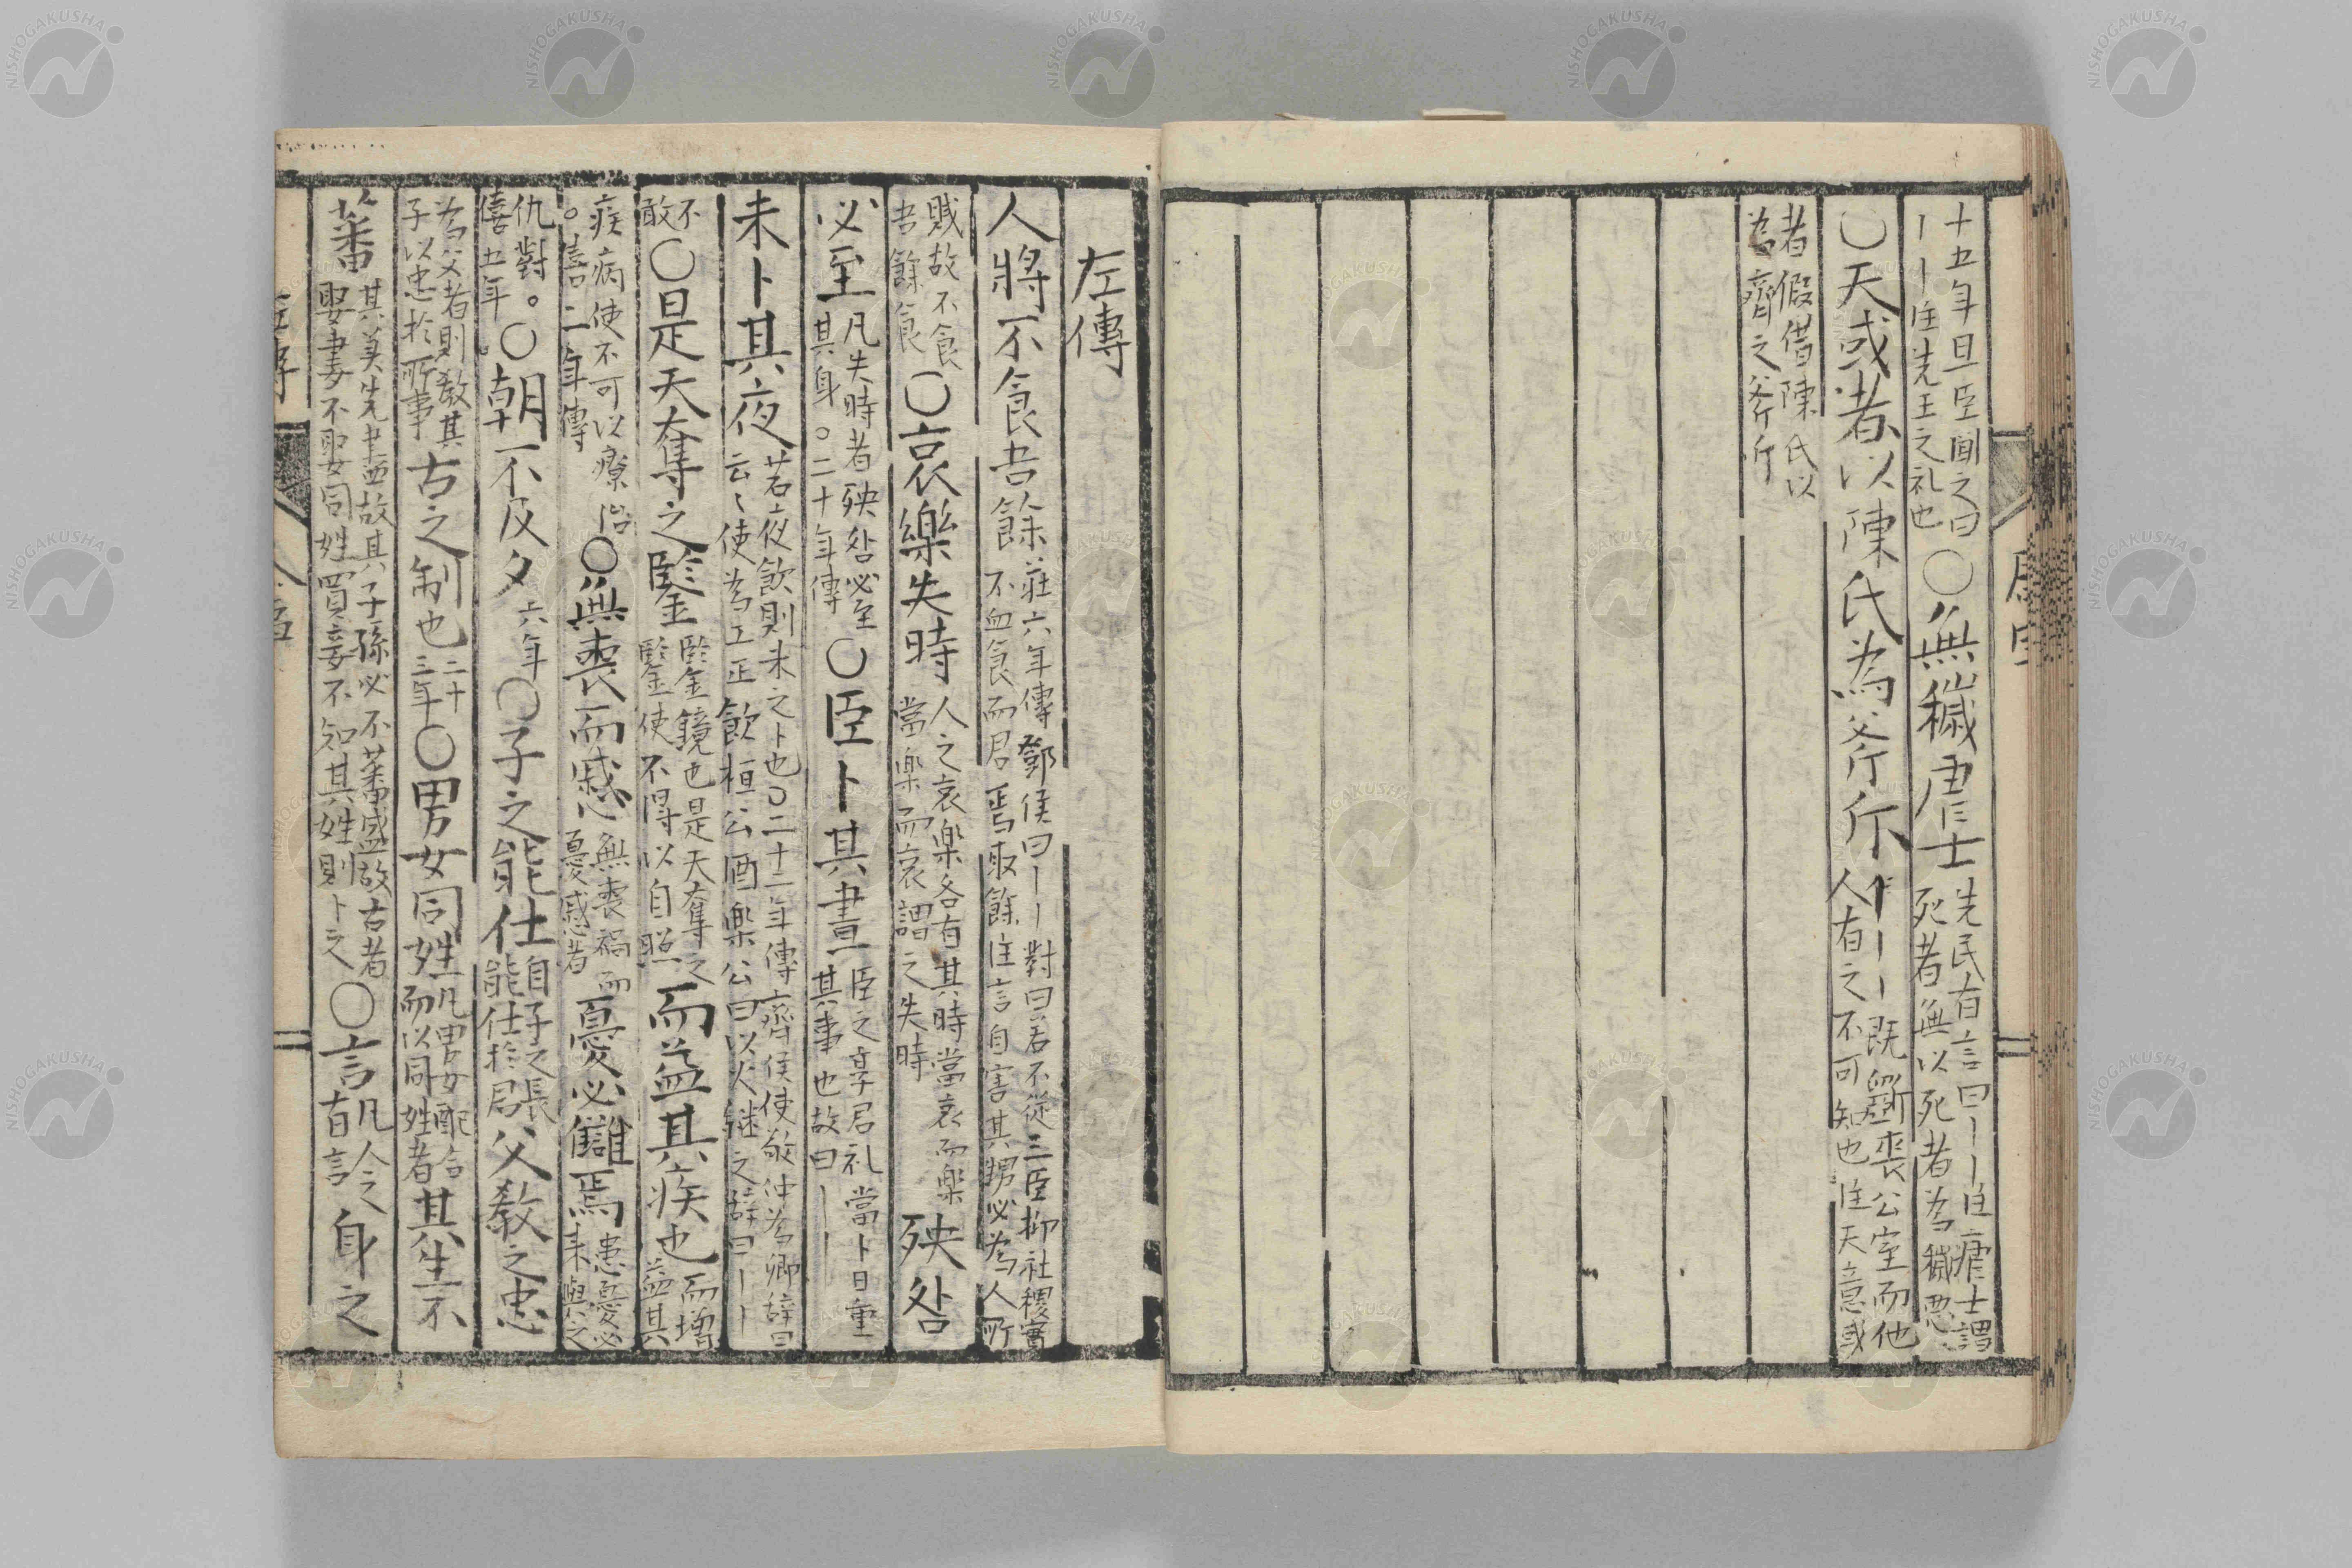 十五年旦臣聞之曰
丨丨注先王之礼也
○無穢虐士
先民有言曰丨丨注虐士謂
死者無以死者為穢惡
○天或者以陳氏為斧斤
丨丨丨既斲喪公室而他
人有之不可知也注天意或
者假借陳氏以
為齊之斧斤
左傳
人將不食吾餘
莊六年傳鄧侯曰丨丨對曰若不從三臣抑社稷實
不血食而君焉取餘注言自害其甥必為人所
賤故不食
吾餘食
○哀樂失時
人之哀樂各有其時當哀而樂
當樂而哀謂之失時
殃咎
必至
凡失時者殃咎必至
其身○二十年傳
○臣卜其晝
臣之享君礼當卜日重
其事也故曰丨丨
未卜其夜
若夜飲則未之卜也○二十二年傳齊侯使敬仲為卿辞曰
云〻使為工正飲桓公酒樂公曰以火継之辞曰丨丨
不
敢
○是天奪之鑒
鑒鏡也是天奪之
鑒使不得以自照
而益其疾也
而增
益其
疾病使不可以療治
○僖二年傳
○無喪而慼
無喪禍而
憂慼者
憂必讎焉
患憂必
来與之
仇對○
僖五年
○朝不及夕
六年
○子之能仕
自子之長
能仕於君
父教之忠
為父者則教其
子以忠於所事
古之制也
二十
三年
○男女同姓
凡男女配合
而以同姓者
其生不
蕃
其美先盡故其子孫必不蕃盛故古者
娶妻不娶同姓買妾不知其姓則卜之
○言
凡人之
有言
身之